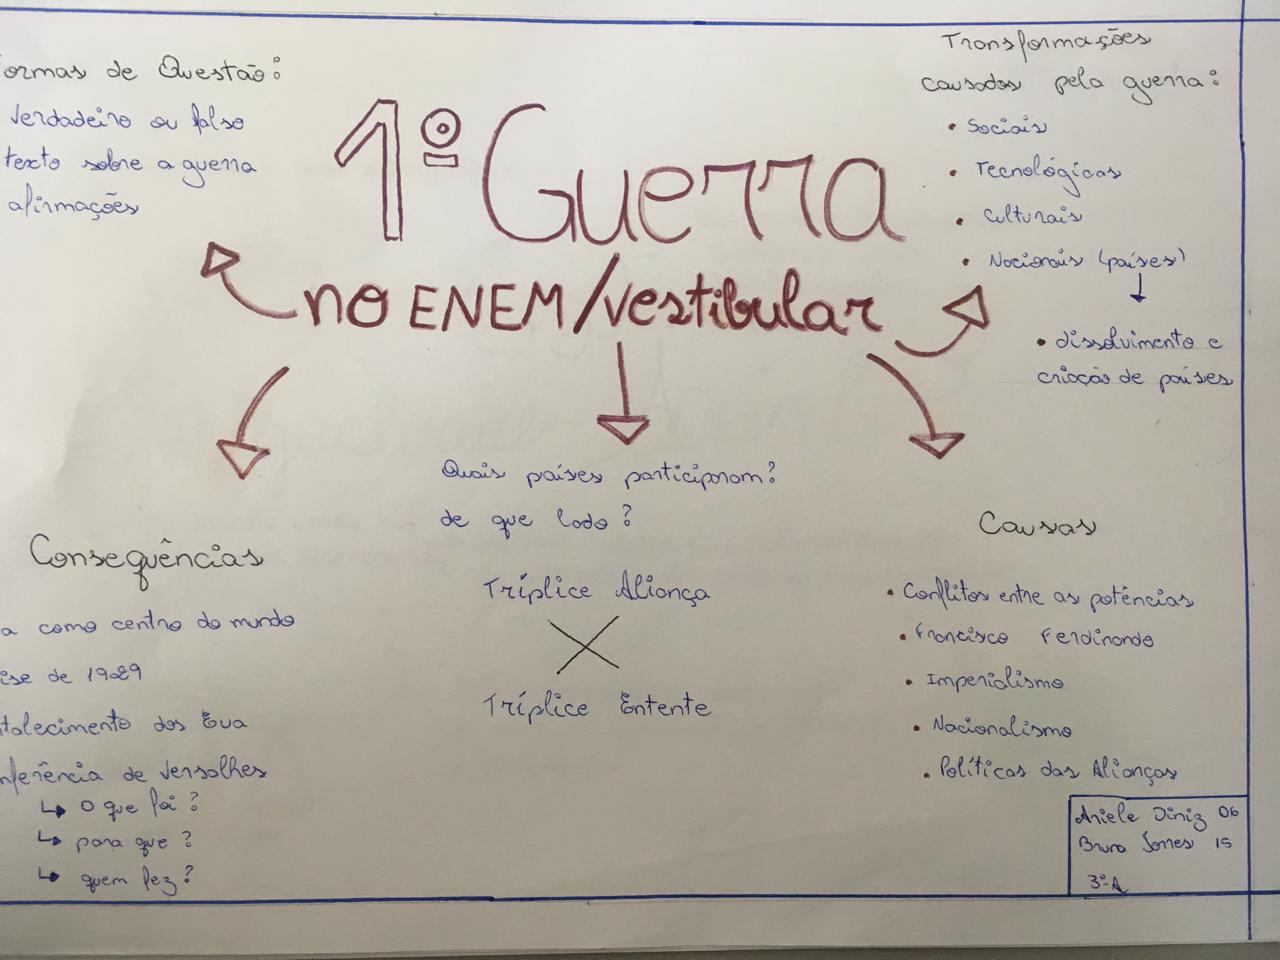 ormas de Questão:
Verdadeiro ou falso
texto sobre a guerra
afirmações
1º Guerra
no ENEM/vestibular
Transformações
causadas pela guerra:
• Sociais
• Tecnológicas
• Culturais
• Nacionais (países)
• dissolvimento e
criação de países
Consequências
a como centro do mundo
ise de 1929
talecimento dos Eua
nferência de Versalhes
↳ O que foi?
↳ para que?
↳ quem fez?
Quais países participaram?
de que lado?
Tríplice Aliança
X
Tríplice Entente
Causas
• Conflitos entre as potências
• Francisco Ferdinando
• Imperialismo
• Nacionalismo
• Políticas das Alianças
Ariele Diniz 06
Bruno 15
3º A